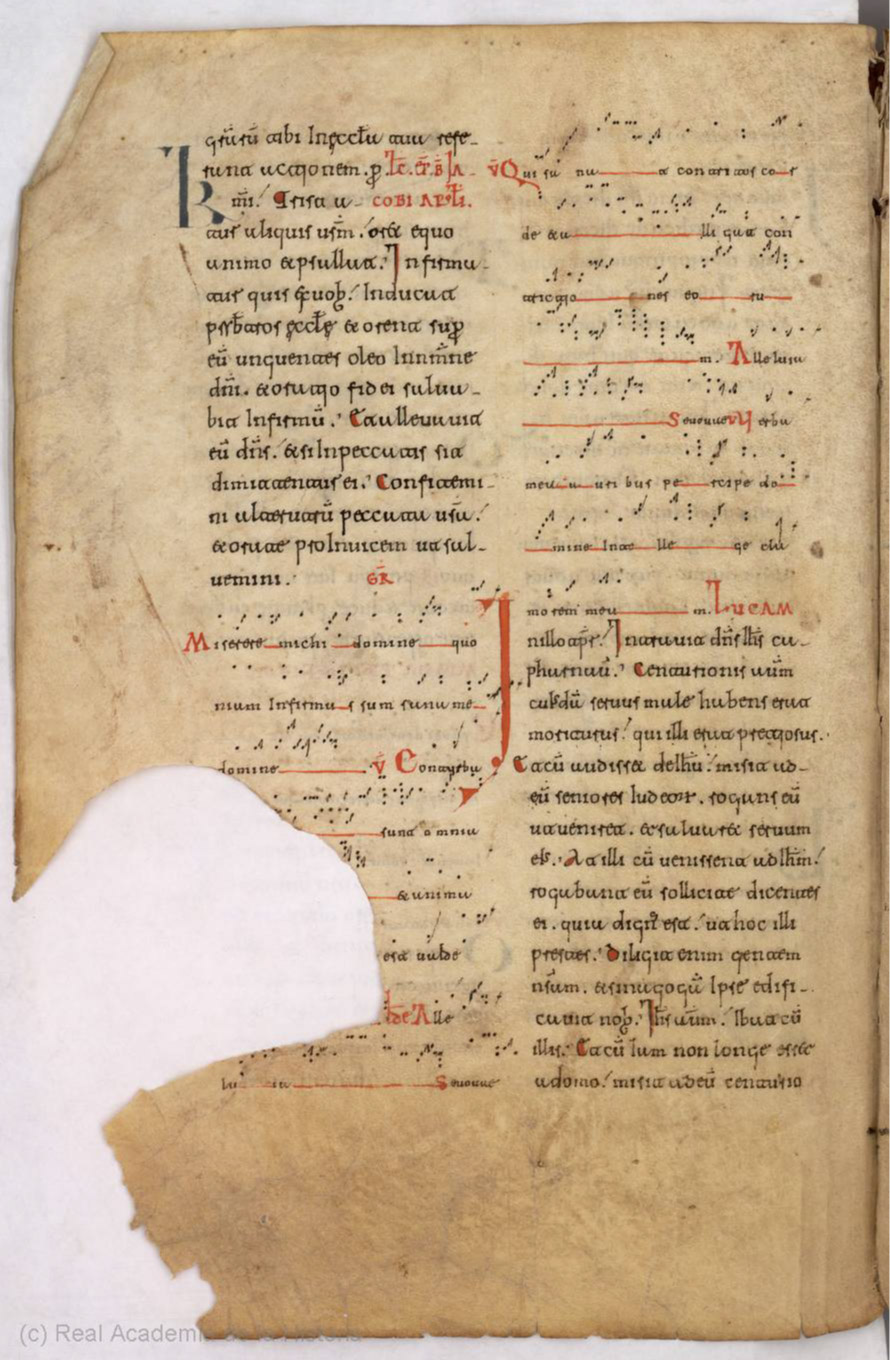 grarū tibi In ęcclā tua refe-
runt actionem. p̄. LC. EPLA IA-
Kmi. Tristatur COBI APLI.
aut aliquis urm̄. oret equo
animo et psallat. Infirma-
tur quis ex uob. Inducat
prbiteros ęcclę et orent sup
eū unguentes oleo In nmine
dni. et oratio fidei salua-
bit Infirmū. Et alleuiauit
eū dns. et si In peccatis sit
dimittentur ei. Confitemi-
ni alterutrū peccata ura.
et orate pro Inuicem ut sal-
uemini. GR
Miserere michi domine quo
niam Infirmus sum sana me
domine V Conturba
suna omnia
et anima
est ualde
Alle
lu ia Seuouae
V Qui sa na t contritos cor
de et a lli gat con
tritio nes eo ru
m. Allelu ia
Seuouae V Uerba
mea auribus percipe do
mine Intelle ge cla
morem meu m. LUCAM
nillo tpr. Intrauit dns ihs ca-
pharnaū. Centurionis autm
cuisdā seruus male habens erat
moriturus. qui illi erat pretiosus.
Et cū audisset de ihū. misit ad
eū seniores Iudeorr. rogans eū
ut ueniret. et saluaret seruum
eis. At illi cū uenissent ad ihm.
rogabant eū sollicite dicentes
ei. quia dign est. ut hoc illi
prestes. Diligit enim gentem
nsam. et sinagogā Ipse edifi-
cauit nob. Ihs autm. Ibat cū
illis. Et cū Iam non longe esset
a domo. misit ad eū centurio